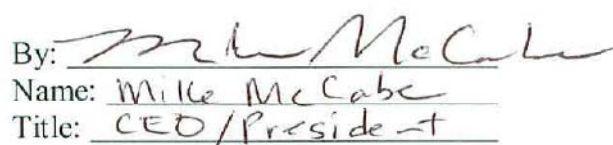 By: Mike McCabe
Name: Mike McCabe
Title: CEO/President